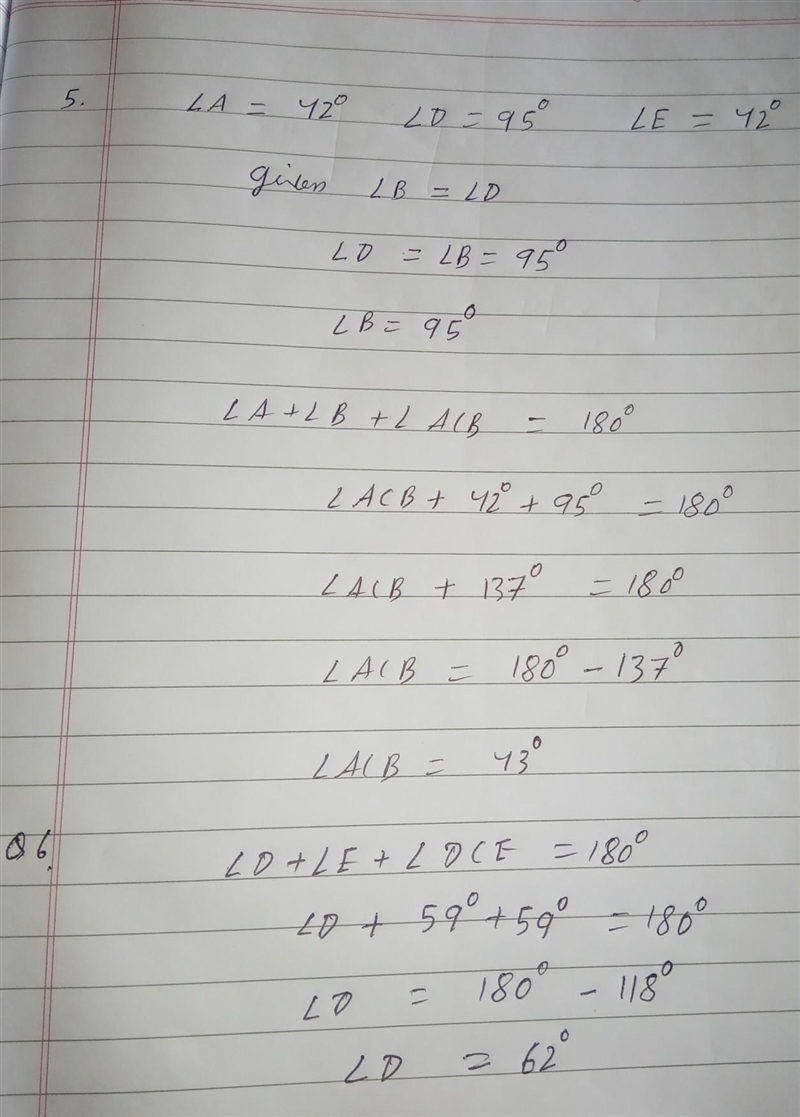 5. ∠A = 42° ∠D = 95° ∠E = 42°
given ∠B = ∠D
∠D = ∠B = 95°
∠B = 95°
∠A + ∠B + ∠ACB = 180°
∠ACB + 42° + 95° = 180°
∠ACB + 137° = 180°
∠ACB = 180° - 137°
∠ACB = 43°
Q6. ∠D + ∠E + ∠DCE = 180°
∠D + 59° + 59° = 180°
∠D = 180° - 118°
∠D = 62°